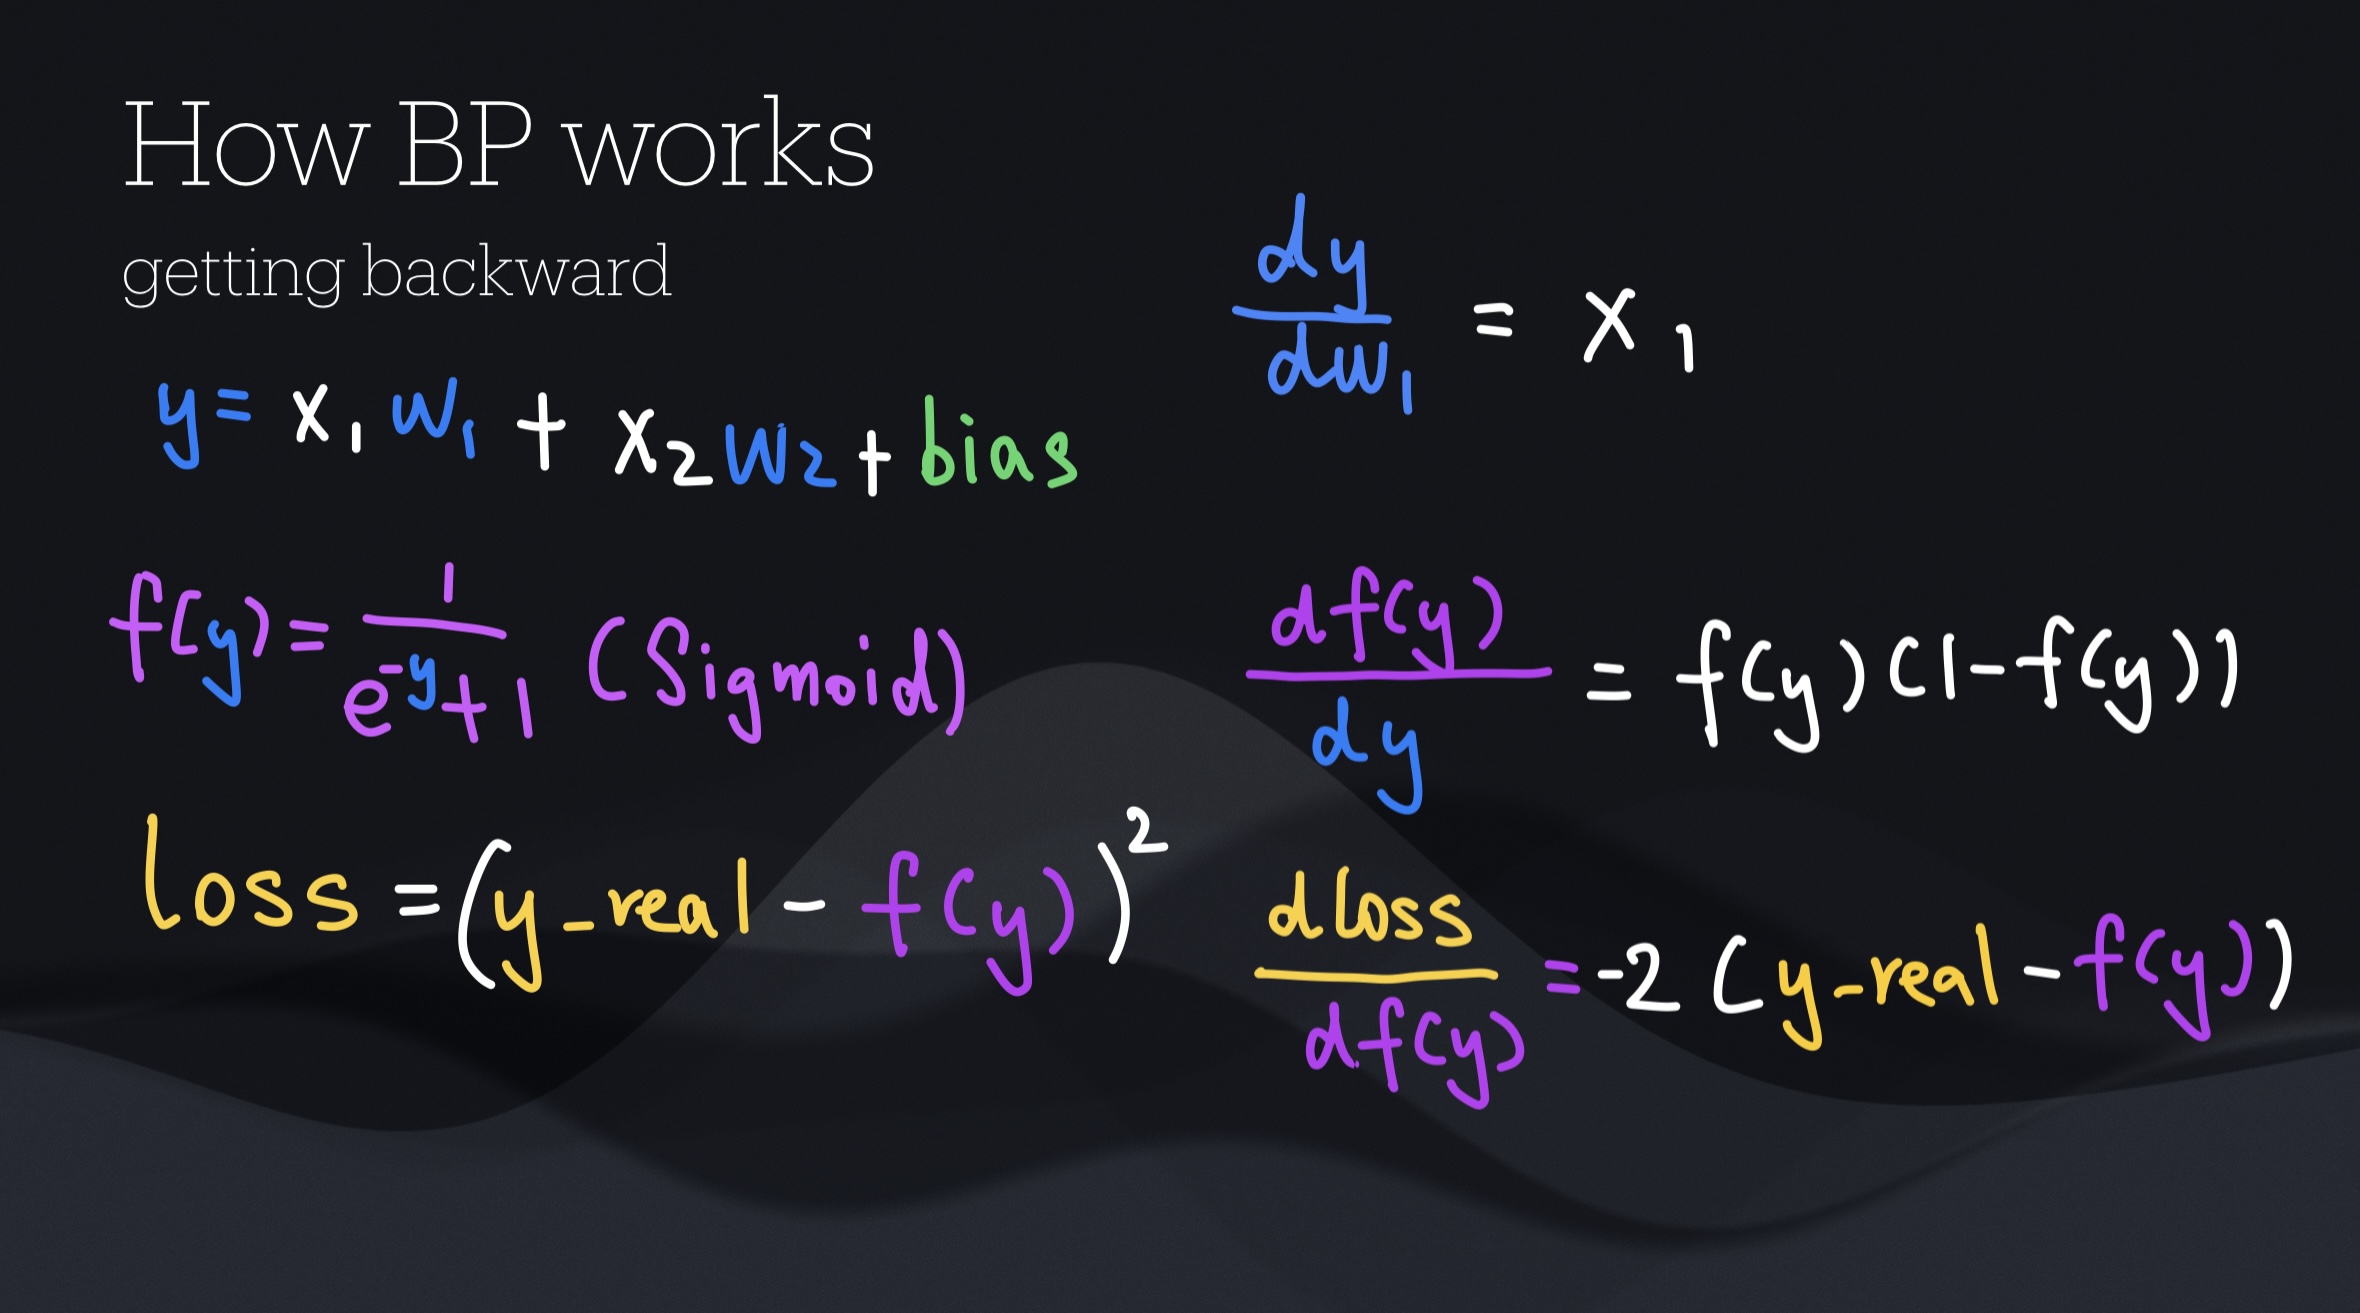 How BP works
getting backward
y = x₁w₁ + x₂w₂ + bias
f(y) = 1/(e^-y + 1) (Sigmoid)
Loss = (y_real - f(y))²
dy/dw₁ = x₁
df(y)/dy = f(y)(1-f(y))
dloss/df(y) = -2(y_real - f(y))